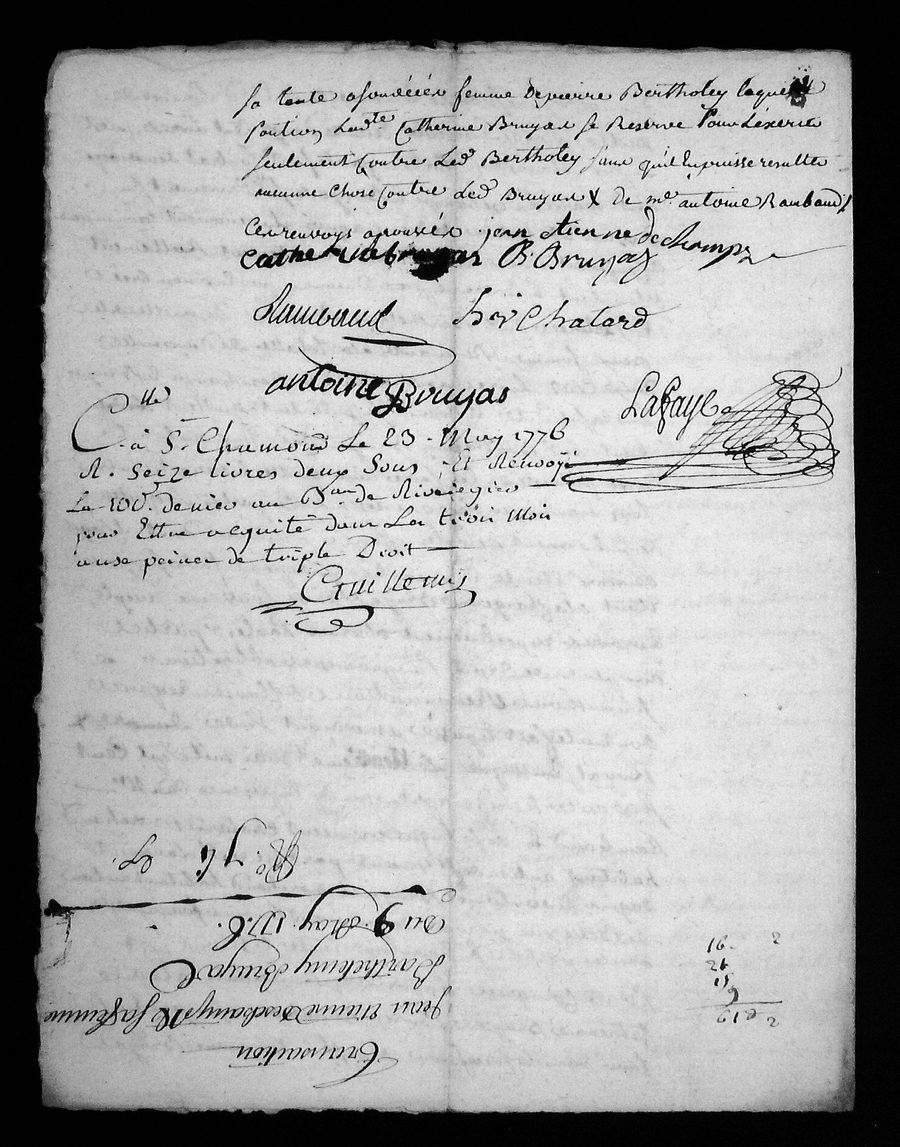 sa tente asondéceés femme de pierre Bertholey laquelle
portion lad.te Catherine Bruyas se Reserve pour L'exercer
seulement Contre Led. Bertholey sans qu'il En puisse resulter
aucunne Chose Contre Led. Bruyas X de me. antoine Raubaud
Ces renvoys aprouvés jean etienne dechamps
Catherine bruyas B. Bruyas
Rambaud hér Chatard
antoine Bruyas
Lafaye
C.lle à St. Chamond Le 23. May 1776
R. Seize livres deux Sous, Et Renvoyé
Le 100e. denier au B.au de Riveriegier
pour Etre acquité dans Les trois Mois
a une peine de triple Droit
Guillemin
16. 2
26
15
9
61 2
Transaction
Jean Etienne Deschamps & sa femme
Barthelemy Bruyas
Du 9 May 1776.